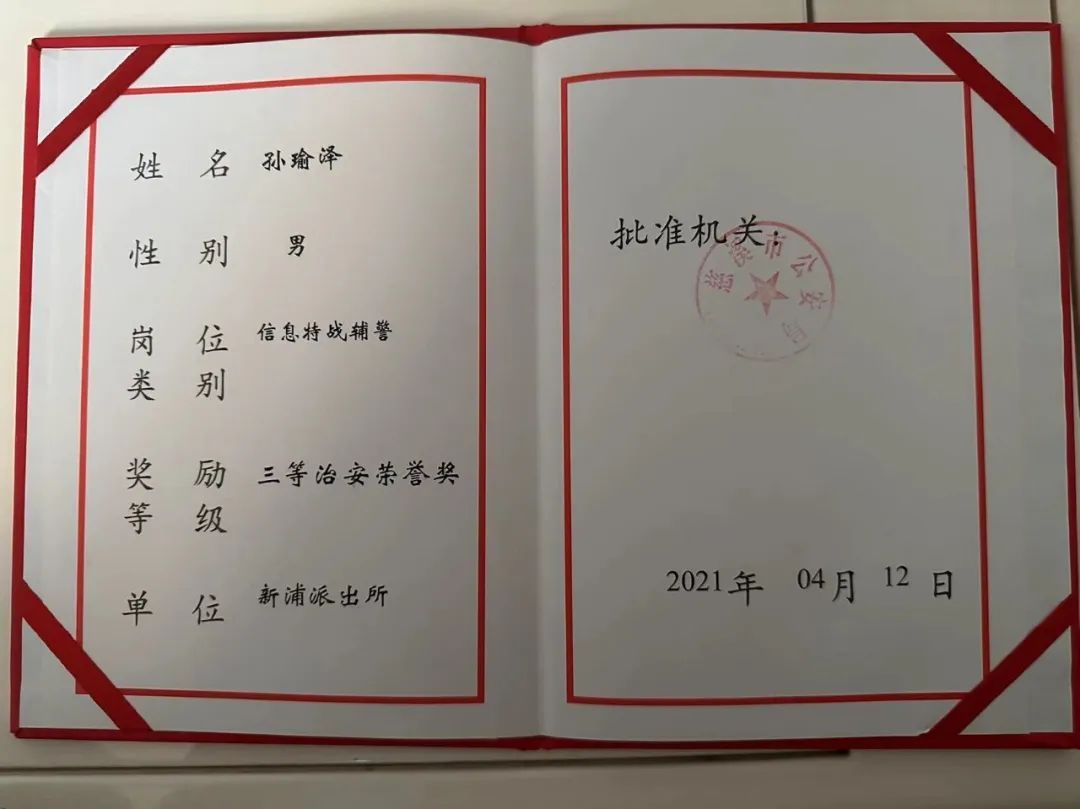 姓 名 孙瑜泽
性 别 男
岗 位 信息特战辅警
类 别
奖 励 三等治安荣誉奖
等 级
单 位 新浦派出所
批准机关:
慈溪市公安局
2021年 04月 12日